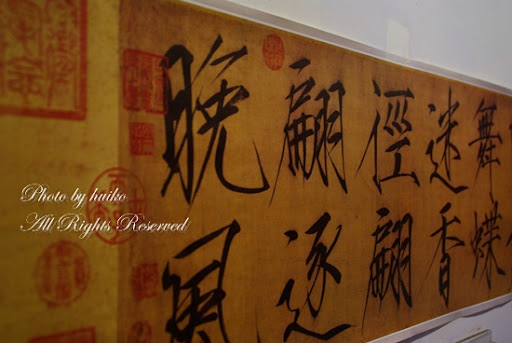 舞蝶
迷香
徑翩
翩逐
晚風
Photo by haiko
All Rights Reserved